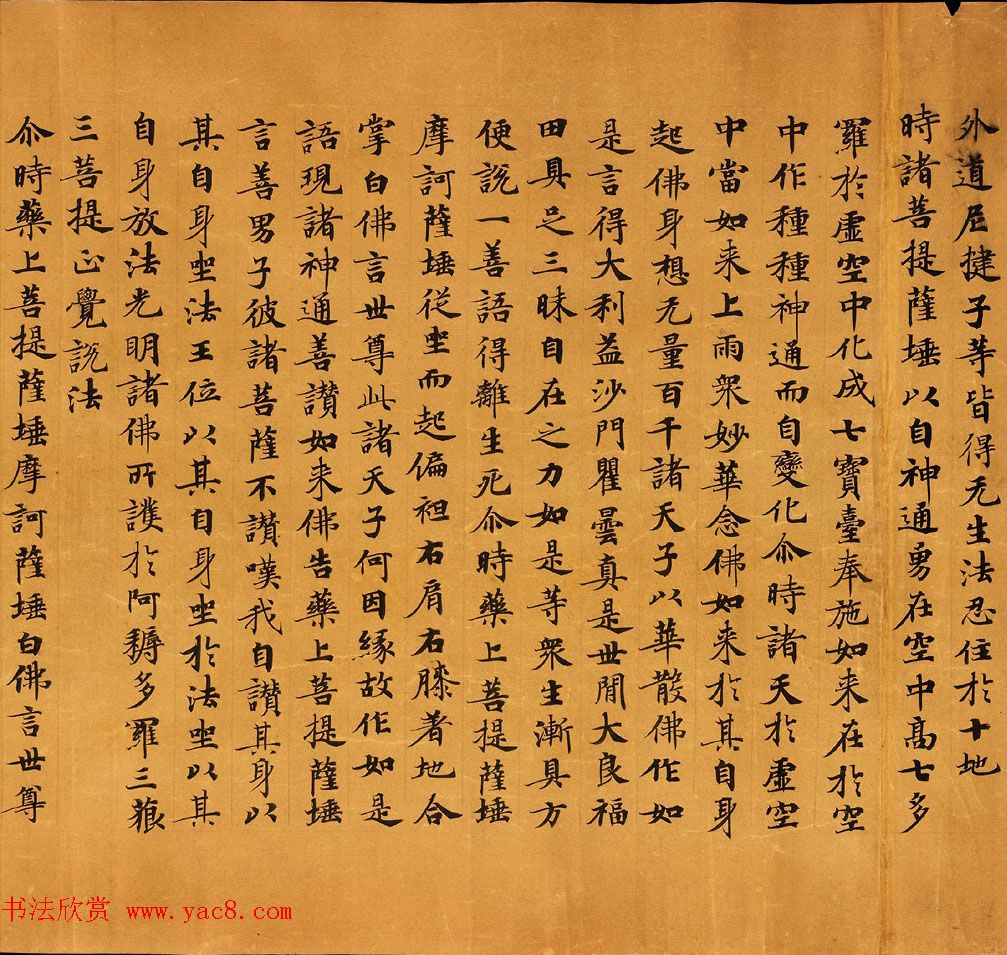 外道尼揵子等皆得无生法忍住於十地
時諸菩提薩埵以自神通勇在空中高七多
羅於虛空中化成七寶臺奉施如来在於空
中作種種神通而自變化尒時諸天於虛空
中當如来上雨衆妙華念佛如来於其自身
起佛身想无量百千諸天子以華散佛作如
是言得大利益沙門瞿曇真是世閒大良福
田具足三昧自在之力如是等衆生漸具方
便說一善語得離生死尒時藥上菩提薩埵
摩訶薩埵從坐而起偏袒右肩右膝著地合
掌白佛言世尊此諸天子何因緣故作如是
語現諸神通善讃如来佛告藥上菩提薩埵
言善男子彼諸菩薩不讃嘆我自讃其身以
其自身坐法王位以其自身坐於法坐以其
自身放法光明諸佛所護於阿耨多羅三藐
三菩提正覺說法
尒時藥上菩提薩埵摩訶薩埵白佛言世尊
书法欣赏 www.yac8.com